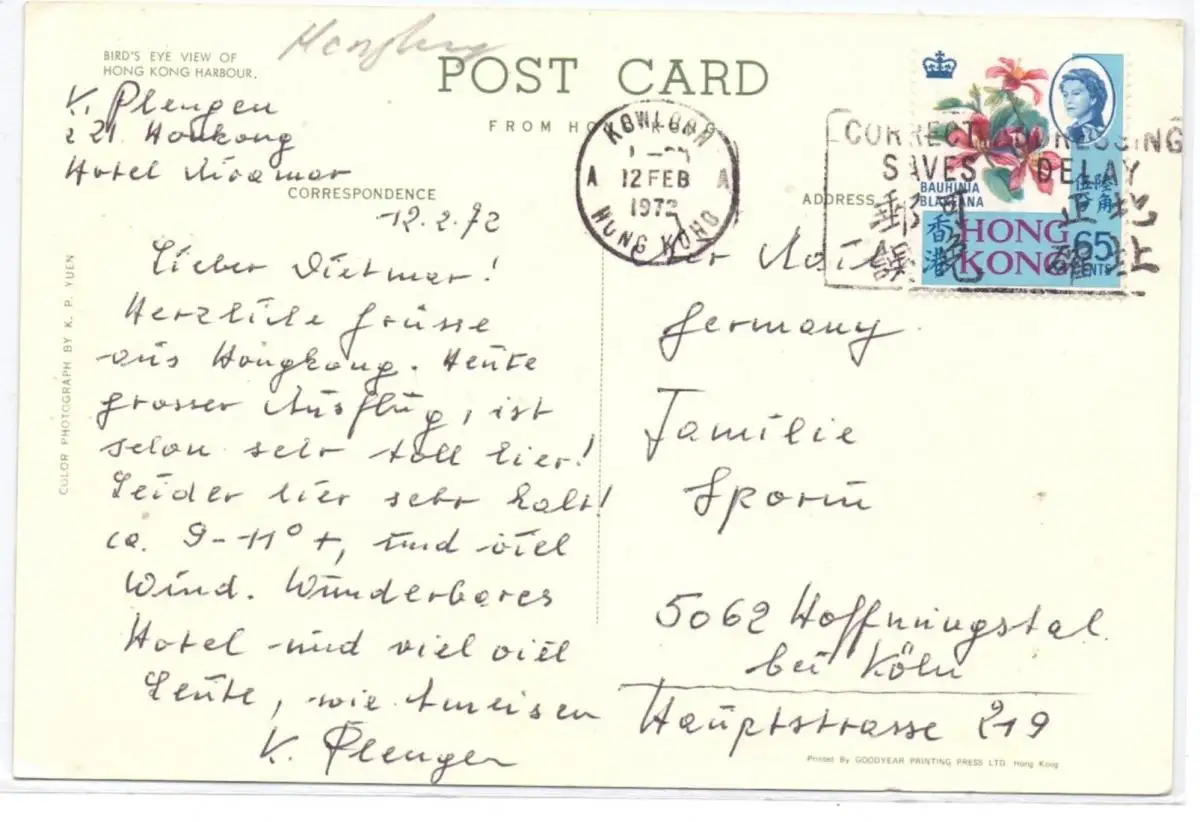 Hongkong
BIRD'S EYE VIEW OF
HONG KONG HARBOUR.
POST CARD
FROM HONG KONG
K. Plengen
z 21. Honkong
Hotel Miramar
CORRESPONDENCE
ADDRESS
KOWLOON
A 12 FEB A
1972
HONG KONG
CORRECT ADDRESSING
SAVES DELAY
BAUHINIA
BLAKEANA
伍陸
分角
香港
HONG
KONG
65
CENTS
12.2.72
Lieber Dietmar!
Herzliche Grüsse
aus Hongkong. Heute
grosser Ausflug, ist
schon sehr toll hier!
Leider hier sehr kalt!
ca. 9-11° +, und viel
Wind. Wunderbares
Hotel und viel viel
Leute, wie Ameisen
K. Plengen
Per Mail
Germany
Familie
Sporin
5062 Hoffnungstal
bei Köln
Hauptstrasse 219
COLOR PHOTOGRAPH BY K. P. YUEN
Printed By GOODYEAR PRINTING PRESS LTD. Hong Kong